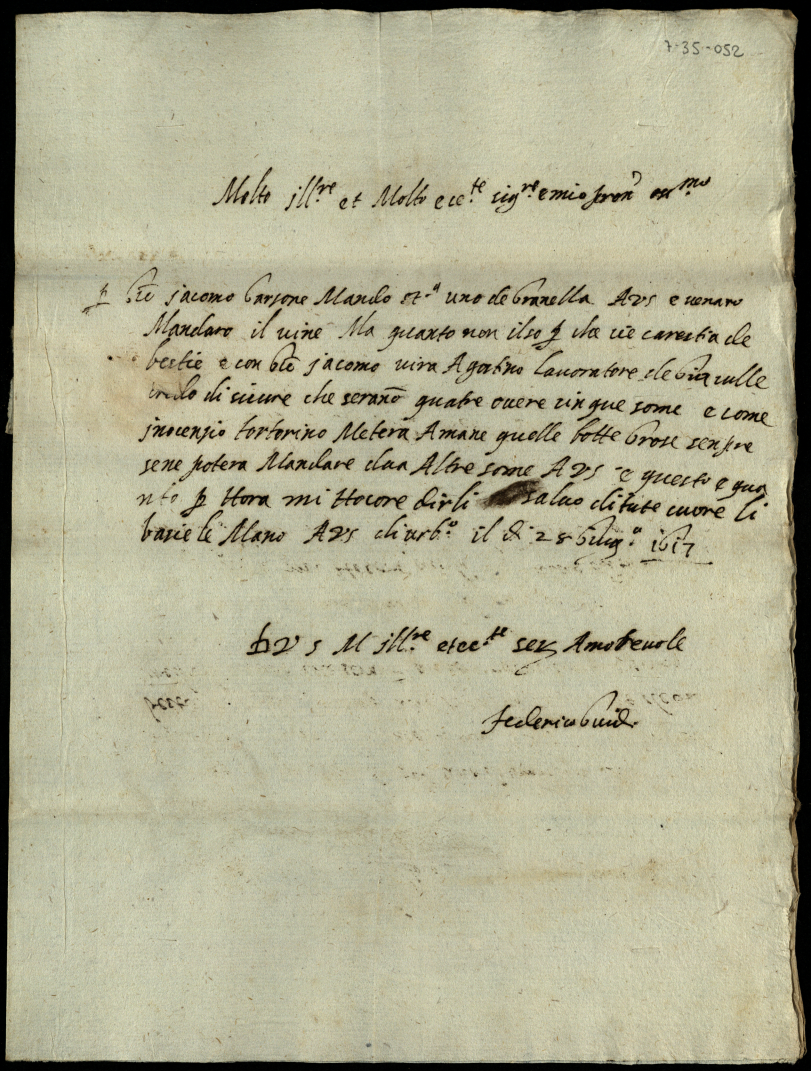 7-35-052
Molto jll.re et Molto ece.te sig.re e mio pron oss.mo
jacomo garzone Mando st.a uno de granella AVS e venaro
Mandaro il vine Ma quanto non ilso p che vie carestia de
bestie e con jacomo vira Agostino lavoratore de
credo di sicure che serano quatre overe cinque some e come
jnocenzio tortorino Metera Amane quelle botte grose senpre
sene potera Mandare dua Altre some AVS e questo e qua
nto p Hora mi Hocore dirli salvo di tute cuore li
bacie le Mano AVS di urb.o il di 28 giug.o 1617
D V S M jll.re et ec.te ser Amorevole
federico Guid.